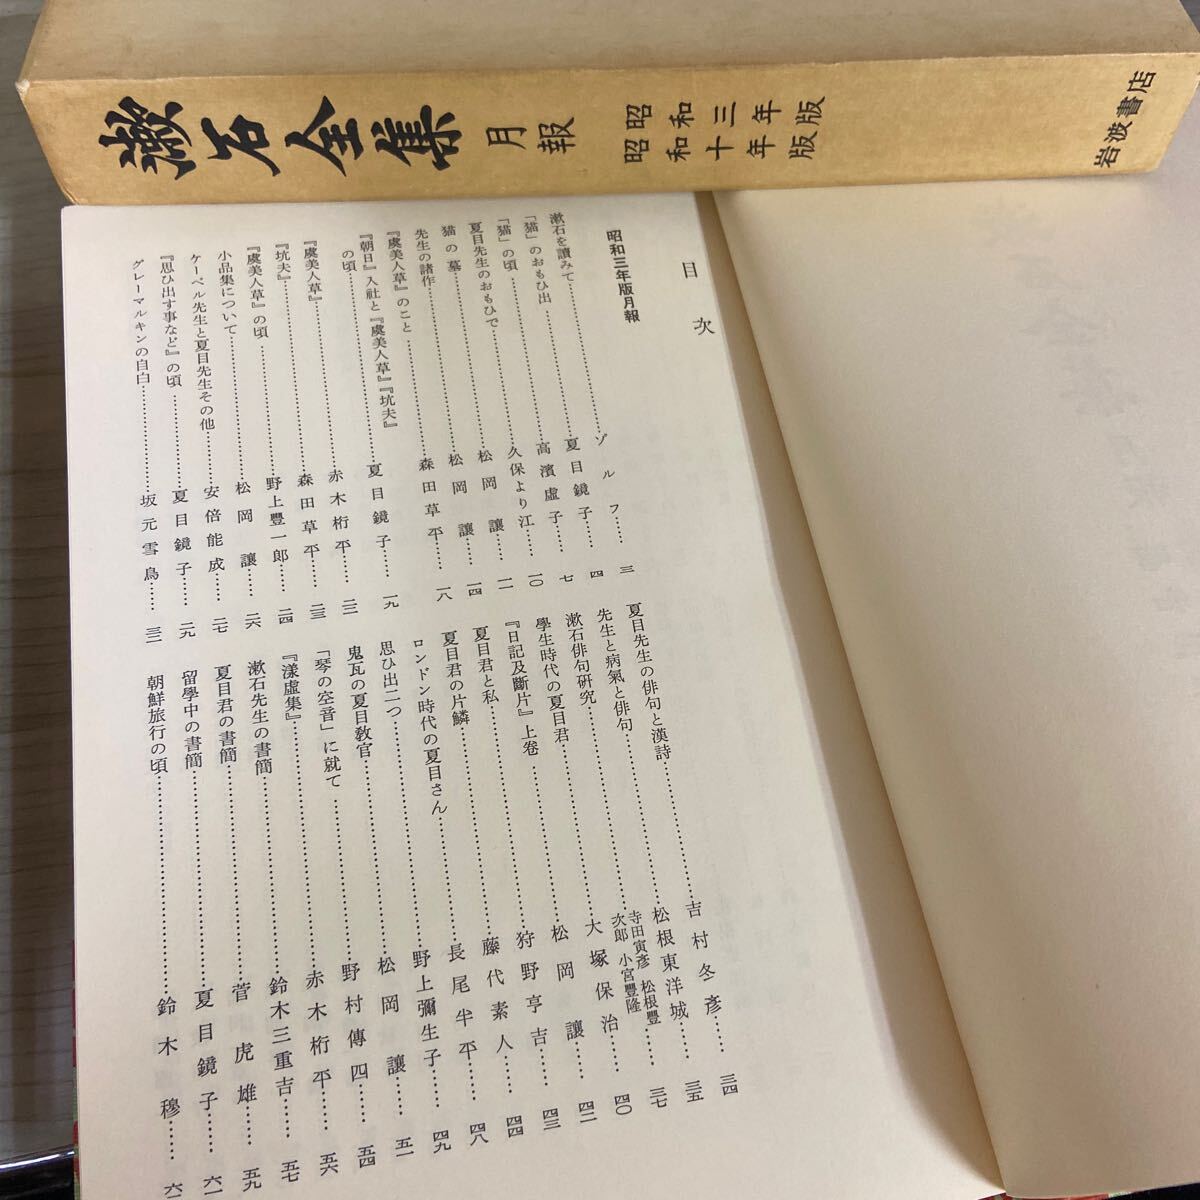 漱石全集
月報
昭和三年版
昭和十年版
岩波書店
目次
昭和三年版月報
漱石を讀みて……ゾルフ……三
「猫」のおもひ出……夏目鏡子……四
「猫」の頃……高濱虛子……七
夏目先生のおもひで……久保より江……一〇
猫の墓……松岡讓……一一
先生の諸作……松岡讓……一四
『虞美人草』のこと……森田草平……一八
『朝日』入社と『虞美人草』『坑夫』
の頃……夏目鏡子……一九
『虞美人草』……赤木桁平……二二
『坑夫』……森田草平……二三
『虞美人草』の頃……野上豐一郎……二四
小品集について……松岡讓……二六
ケーベル先生と夏目先生その他……安倍能成……二七
『思ひ出す事など』の頃……夏目鏡子……二九
グレーマルキンの自白……坂元雪鳥……三二
夏目先生の俳句と漢詩……吉村冬彥……三四
先生と病氣と俳句……松根東洋城……三五
漱石俳句研究……寺田寅彥 松根豐次郎 小宮豐隆……三七
學生時代の夏目君……大塚保治……四〇
『日記及斷片』上卷……松岡讓……四二
夏目君と私……狩野亨吉……四三
夏目君の片鱗……藤代素人……四四
ロンドン時代の夏目さん……長尾半平……四八
思ひ出二つ……野上彌生子……四九
鬼瓦の夏目敎官……松岡讓……五一
「琴の空音」に就て……野村傳四……五四
『漾虛集』……赤木桁平……五六
漱石先生の書簡……鈴木三重吉……五七
夏目君の書簡……菅虎雄……五九
留學中の書簡……夏目鏡子……六一
朝鮮旅行の頃……鈴木穆……